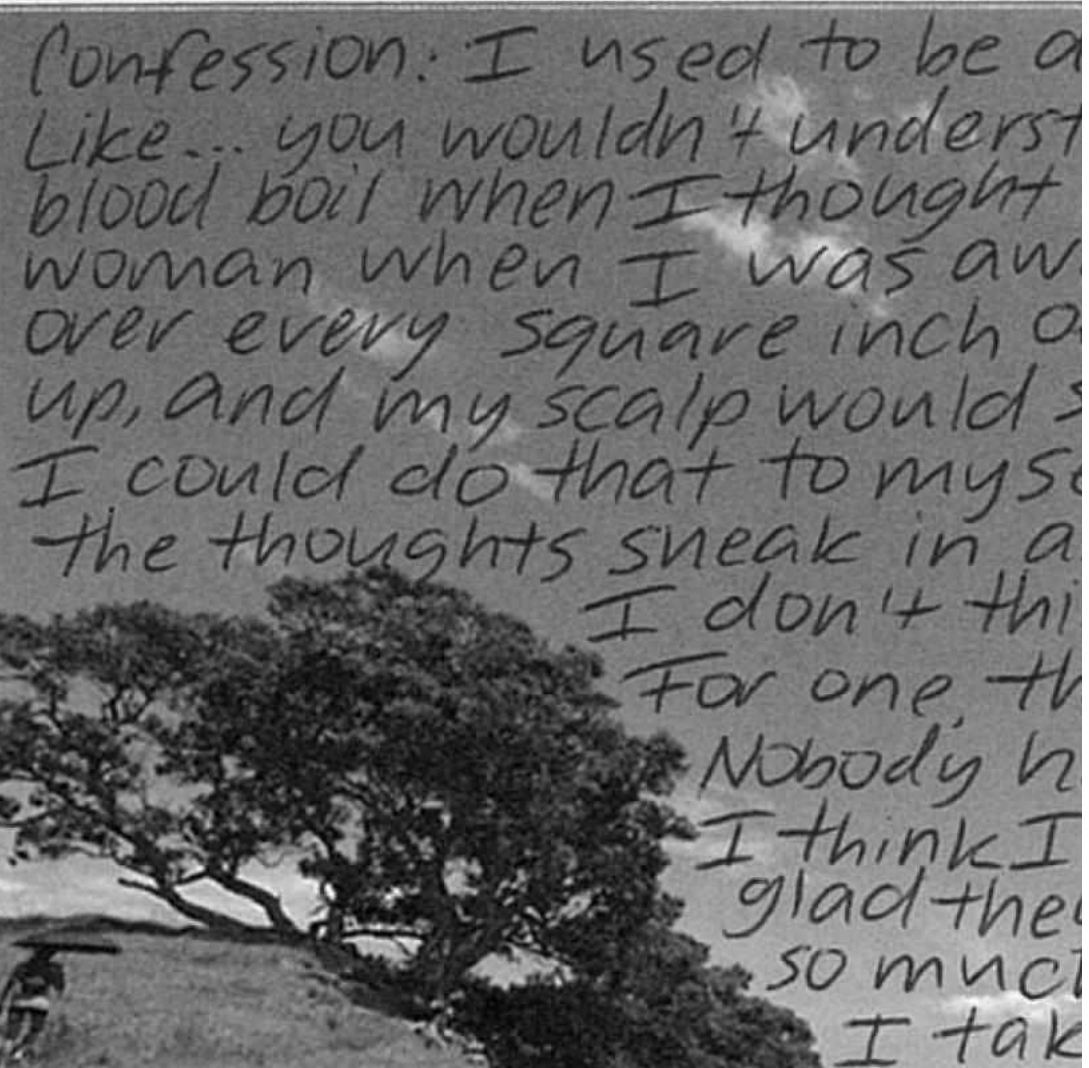 Confession: I used to be a
Like... you wouldn't underst
blood boil when I thought
woman when I was aw
over every square inch o
up, and my scalp would s
I could do that to myse
the thoughts sneak in a
I don't thi
For one, th
Nobody h
I think I
glad they
so much
I tak